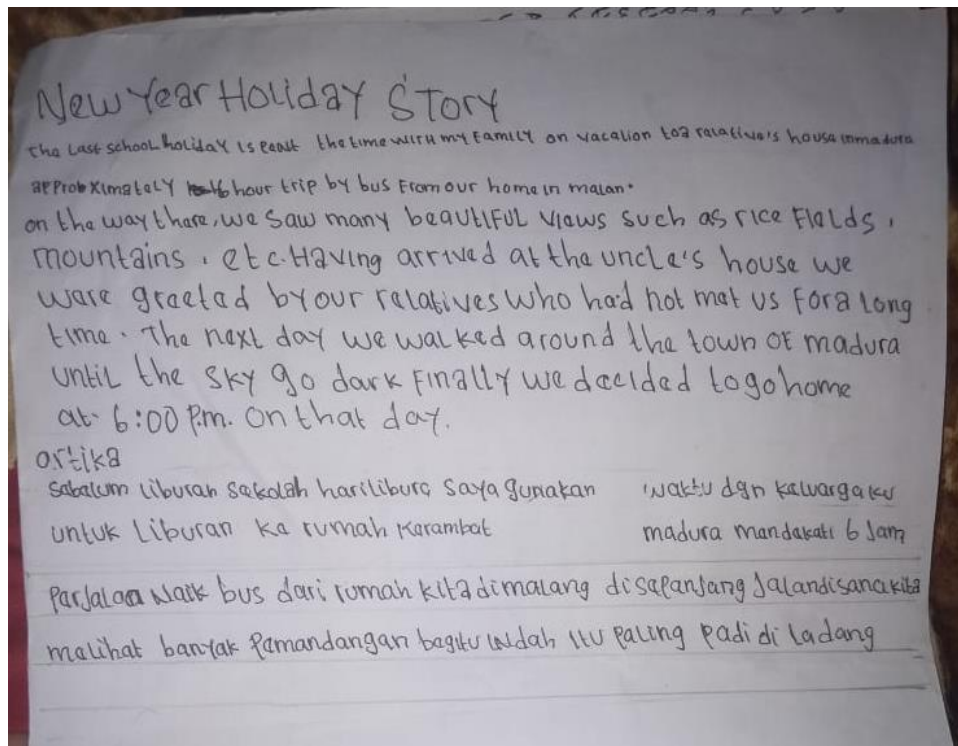 New Year Holiday Story
The Last school holiday is peast the time with my Family on vacation to a relative's house in madura
approbximately 6 hour trip by bus From our home in malan.
on the way there, we saw many beautiful views such as rice Fields,
mountains, etc. Having arrived at the uncle's house we
were greeted by our relatives who had not met us For a long
time. The next day we walked around the town oF madura
until the sky go dark Finally we decided to go home
at 6:00 P.m. on that day.
artika
sebelum liburan sekolah hari libura saya gunakan waktu dgn keluargaku
untuk liburan ke rumah kerambat madura mendekati 6 Jam
Parjalaa naik bus dari rumah kita dimalang disepanjang Jalan disana kita
melihat banyak Pemandangan begitu indah itu paling padi di ladang